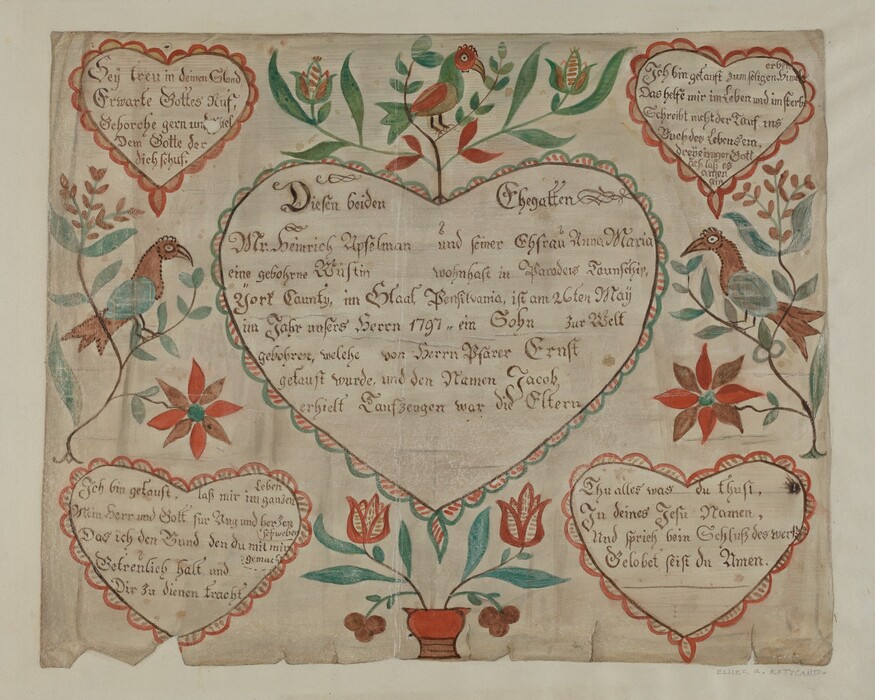 Sey treu in deinem Stand
Erwarte Gottes Ruf,
Gehorche gern und
Dem Gotte der
dich schuf.
erben
Ich bin getauft zum seligen
Das helfe mir im Leben und im sterb
Schreibt nicht der Tauf ins
Buch des Lebens ein,
dreyeiniger Gott
sein
Diesen beiden Ehegatten
Mr. Heinrich Apfelman und seiner Ehfrau Anna Maria
eine gebohrne Wüstin wohnhaft in Paradeis Taunschip,
York County, im Staat Pensilvania, ist am 26ten May
im Jahr unsers Herrn 1797 ein Sohn zur Welt
gebohren, welche von Herrn Pfärer Ernst
getauft wurde, und den Namen Jacob,
erhielt Taufzeugen war die Eltern
Leben
Ich bin getauft, laß mir im ganzen
Mein Herr und Gott für Aug und herzen
schweben
Das ich den Bund den du mit mir
gemacht
Getreulich halt und
Dir zu dienen tracht
Thu alles was du thust,
In deines Jesu Namen,
Und sprich beim Schluß des werks
Gelobet seist du Amen.